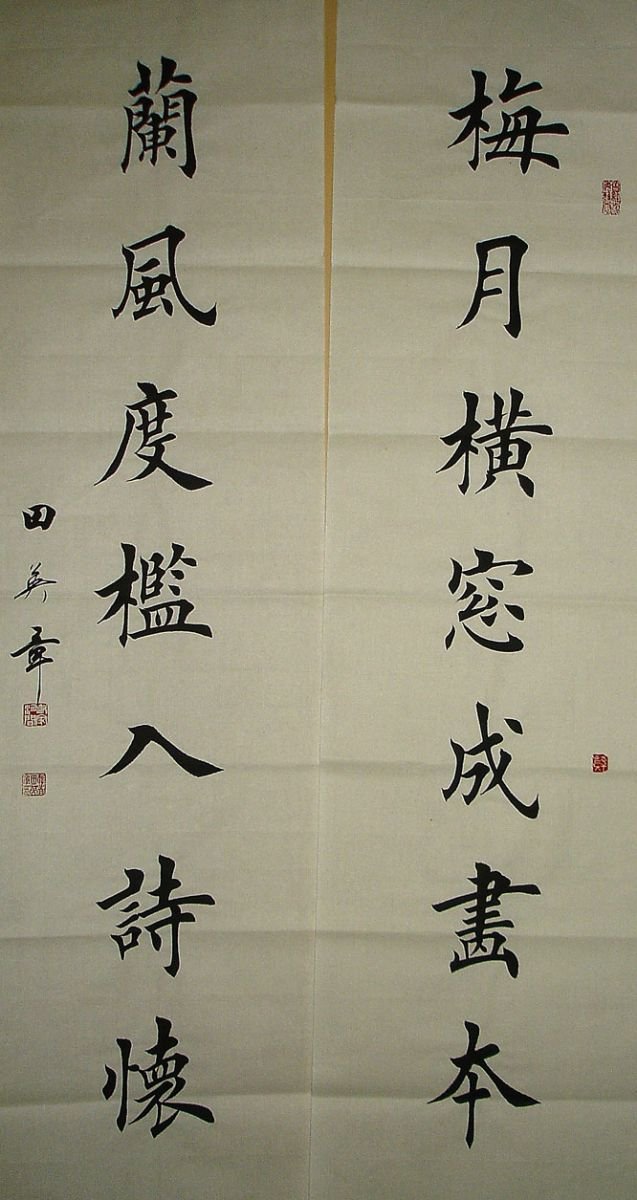 梅月橫窓成畫本
蘭風度檻入詩懷
田英章